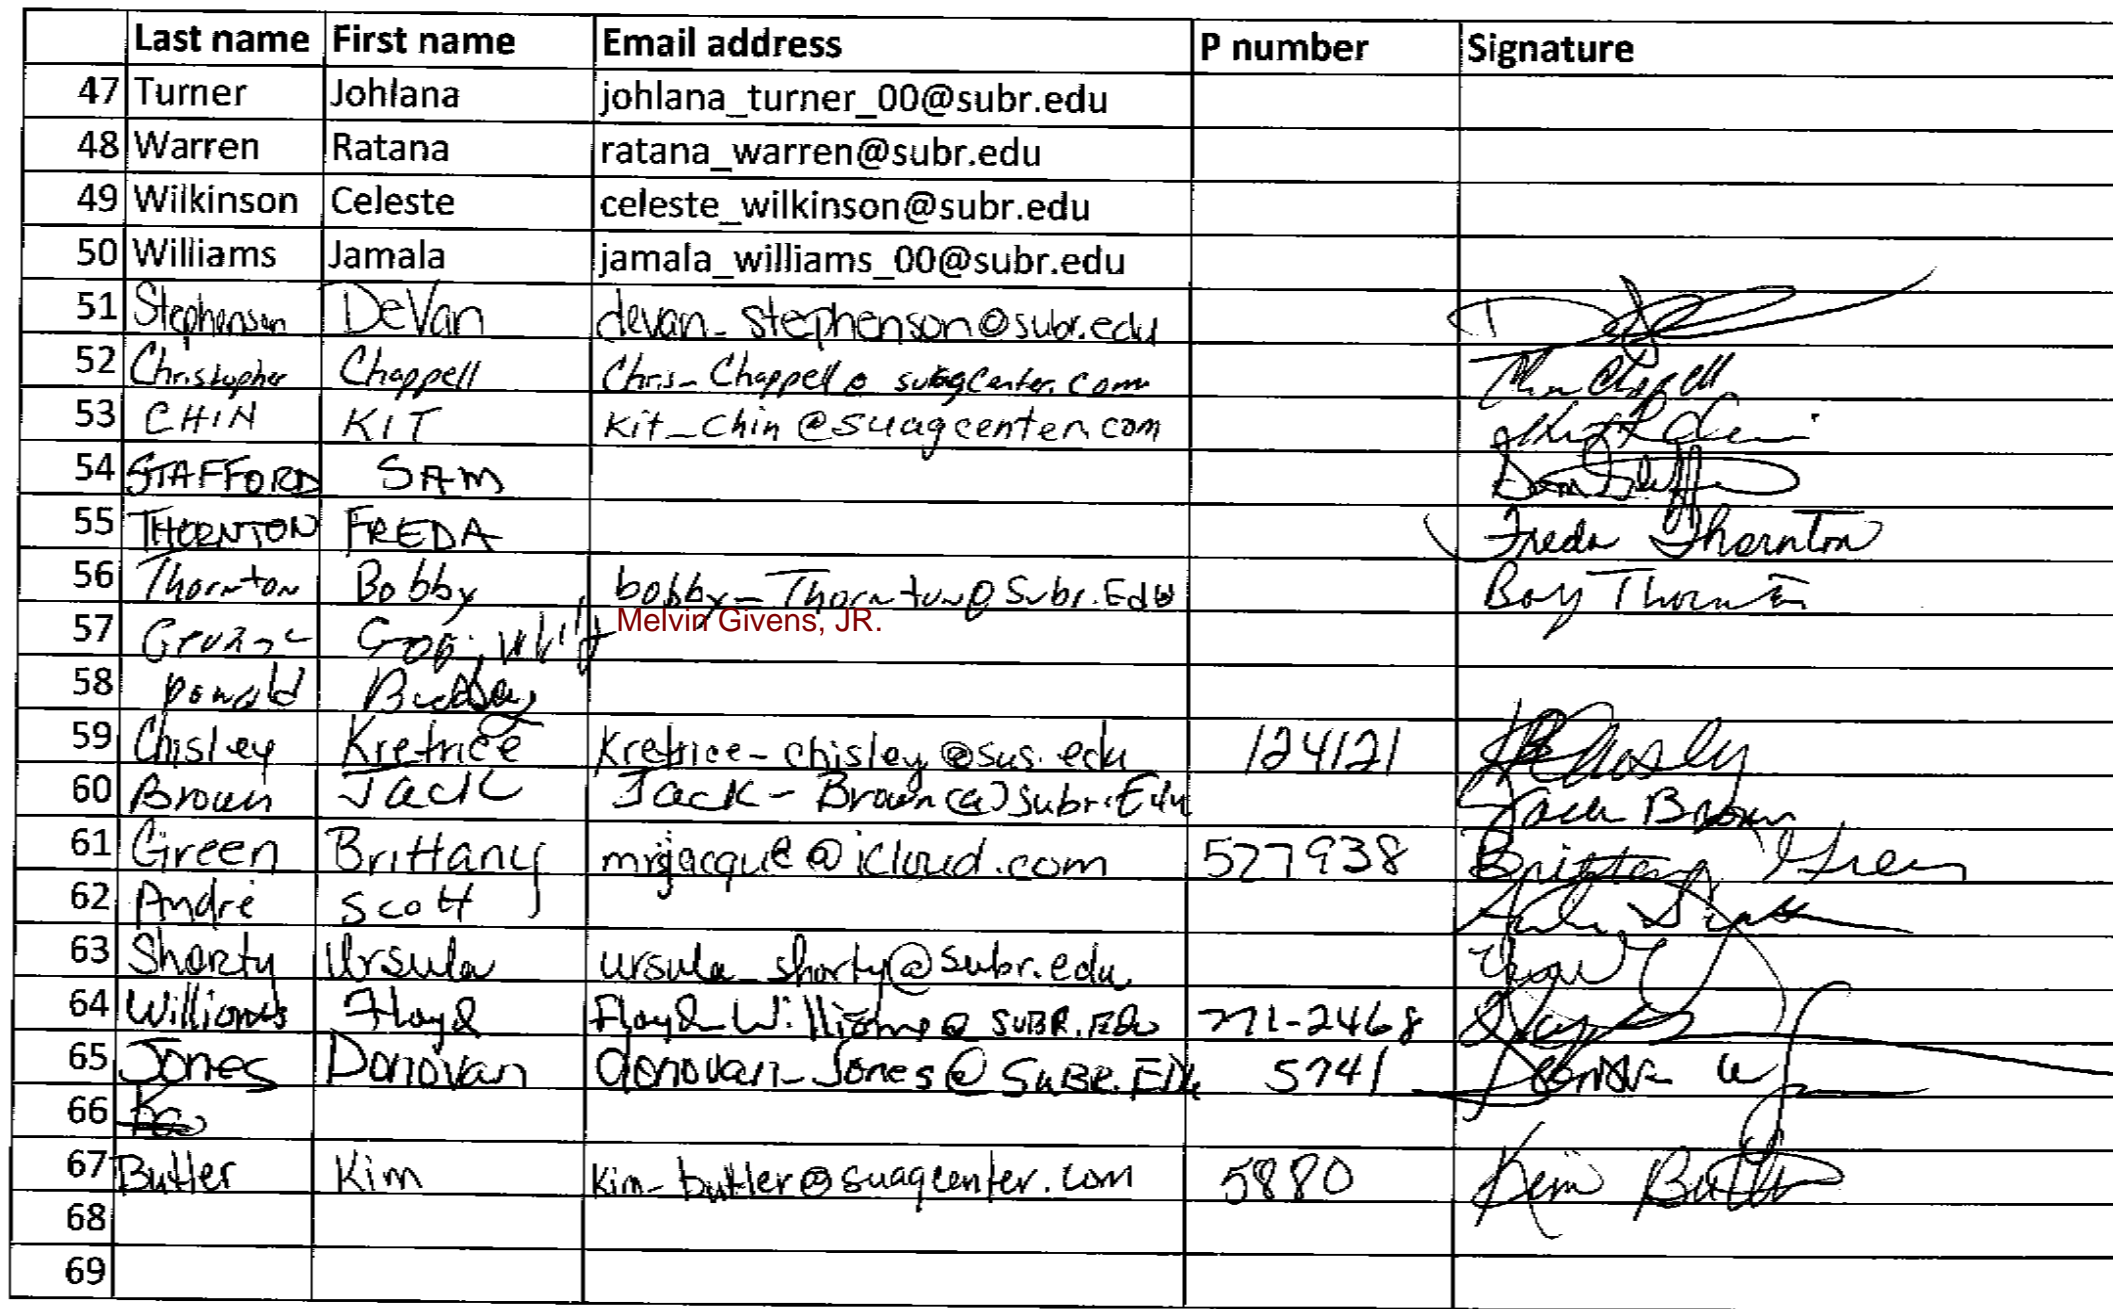 Last name First name Email address P number Signature
47 Turner Johlana johlana_turner_00@subr.edu
48 Warren Ratana ratana_warren@subr.edu
49 Wilkinson Celeste celeste_wilkinson@subr.edu
50 Williams Jamala jamala_williams_00@subr.edu
51 Stephenson DeVan devan_stephenson@subr.edu
52 Christopher Chappell Chris_Chappell@suagcenter.com Chris Chappell
53 CHIN KIT Kit_Chin@suagcenter.com
54 STAFFORD SAM
55 THORNTON FREDA Freda Thornton
56 Thornton Bobby bobby_Thornton@Subr.Edu
57 Melvin Givens, JR.
58 Donald
59 Chisley Kretrice Kretrice_chisley@sus.edu 124121
60 Brown Jack Jack_Brown@subr.Edu Jack Brown
61 Green Brittany mrjacque@icloud.com 527938 Brittany Green
62 Andre Scott
63 Shorty Ursula ursula_shorty@subr.edu
64 Williams Floyd Floyd_Williams@SUBR.EDU 771-2468
65 Jones Donovan donovan_Jones@SUBR.EDU 5741
66
67 Butler Kim Kim_butler@suagcenter.com 5880 Kim Butler
68
69